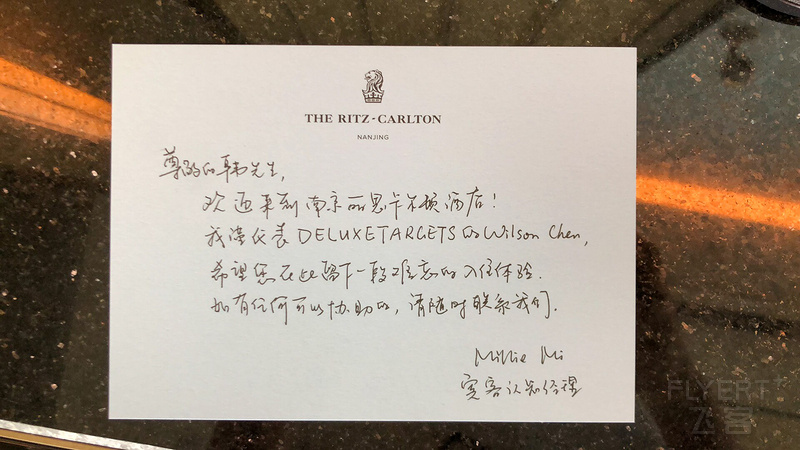 THE RITZ-CARLTON
NANJING
尊敬的韩先生,
欢迎来到南京丽思卡尔顿酒店!
我谨代表 DELUXETARGETS 的 Wilson Chen,
希望您在此留下一段难忘的入住体验.
如有任何可以协助的, 请随时联系我们.
Millie Mi
宾客认知经理
FLYERT
飞客